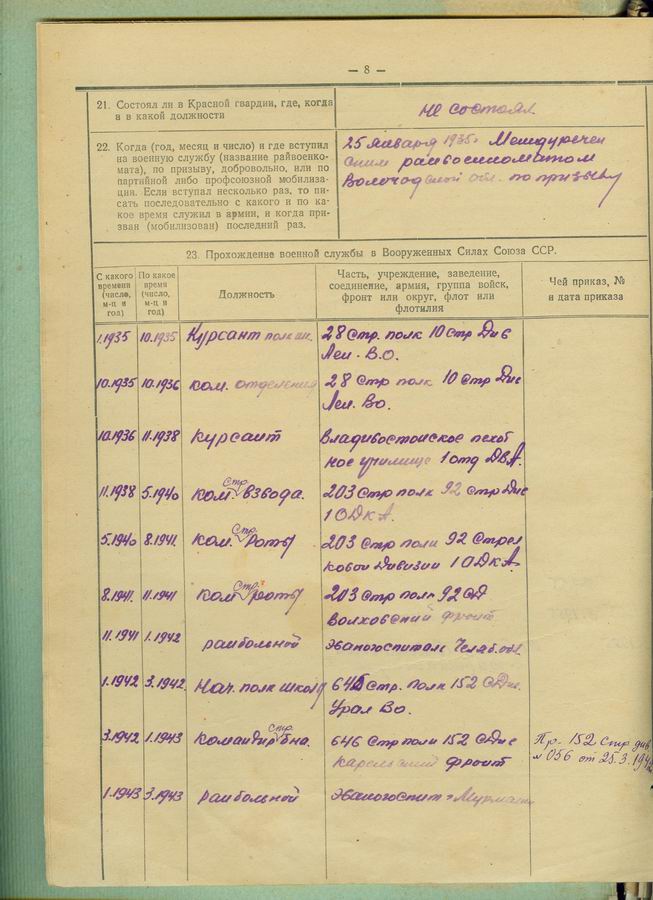 — 8 —
21. Состоял ли в Красной гвардии, где, когда
и в какой должности
не состоял
22. Когда (год, месяц и число) и где вступил
на военную службу (название райвоенко-
мата), по призыву, добровольно, или по
партийной либо профсоюзной мобилиза-
ции. Если вступал несколько раз, то пи-
сать последовательно с какого и по ка-
кое время служил в армии, и когда при-
зван (мобилизован) последний раз.
25 января 1935г. Междуречен
ским райвоенкоматом
Вологодской обл. по призыву
23. Прохождение военной службы в Вооруженных Силах Союза ССР.
С какого времени (число, м-ц и год)
По какое время (число, м-ц и год)
Должность
Часть, учреждение, заведение,
соединение, армия, группа войск,
фронт или округ, флот или
флотилия
Чей приказ, №
и дата приказа
1.1935 10.1935 Курсант полк шк. 28 Стр. полк 10 Стр Див
Лен. В.О.
10.1935 10.1936 ком. отделения 28 Стр полк 10 Стр Див
Лен. Во.
10.1936 11.1938 Курсант Владивостокское пехот
ное училище 1 отд ДВА.
11.1938 5.1940 ком стр взвода. 203 Стр полк 92 стр Див
1 ОДКА.
5.1940 8.1941. ком. стр. роты 203 Стр полк 92 Стрел
ковой Дивизии 1 ОДКА.
8.1941. 11.1941 ком стр. роты 203 Стр полк 92 СД
Волховский фронт
11.1941 1.1942 ранбольной Эвакогоспиталь Челяб. обл.
1.1942 3.1942. Нач. полк школы 646 Стр. полк 152 СДив.
Урал Во.
3.1942 1.1943 командир стр. б-на. 646 Стр полк 152 СДив
Карельский фронт
Пр. 152 Стр див
№ 056 от 25.3.1942
1.1943 3.1943 ранбольной Эвакогоспит г Мурманск